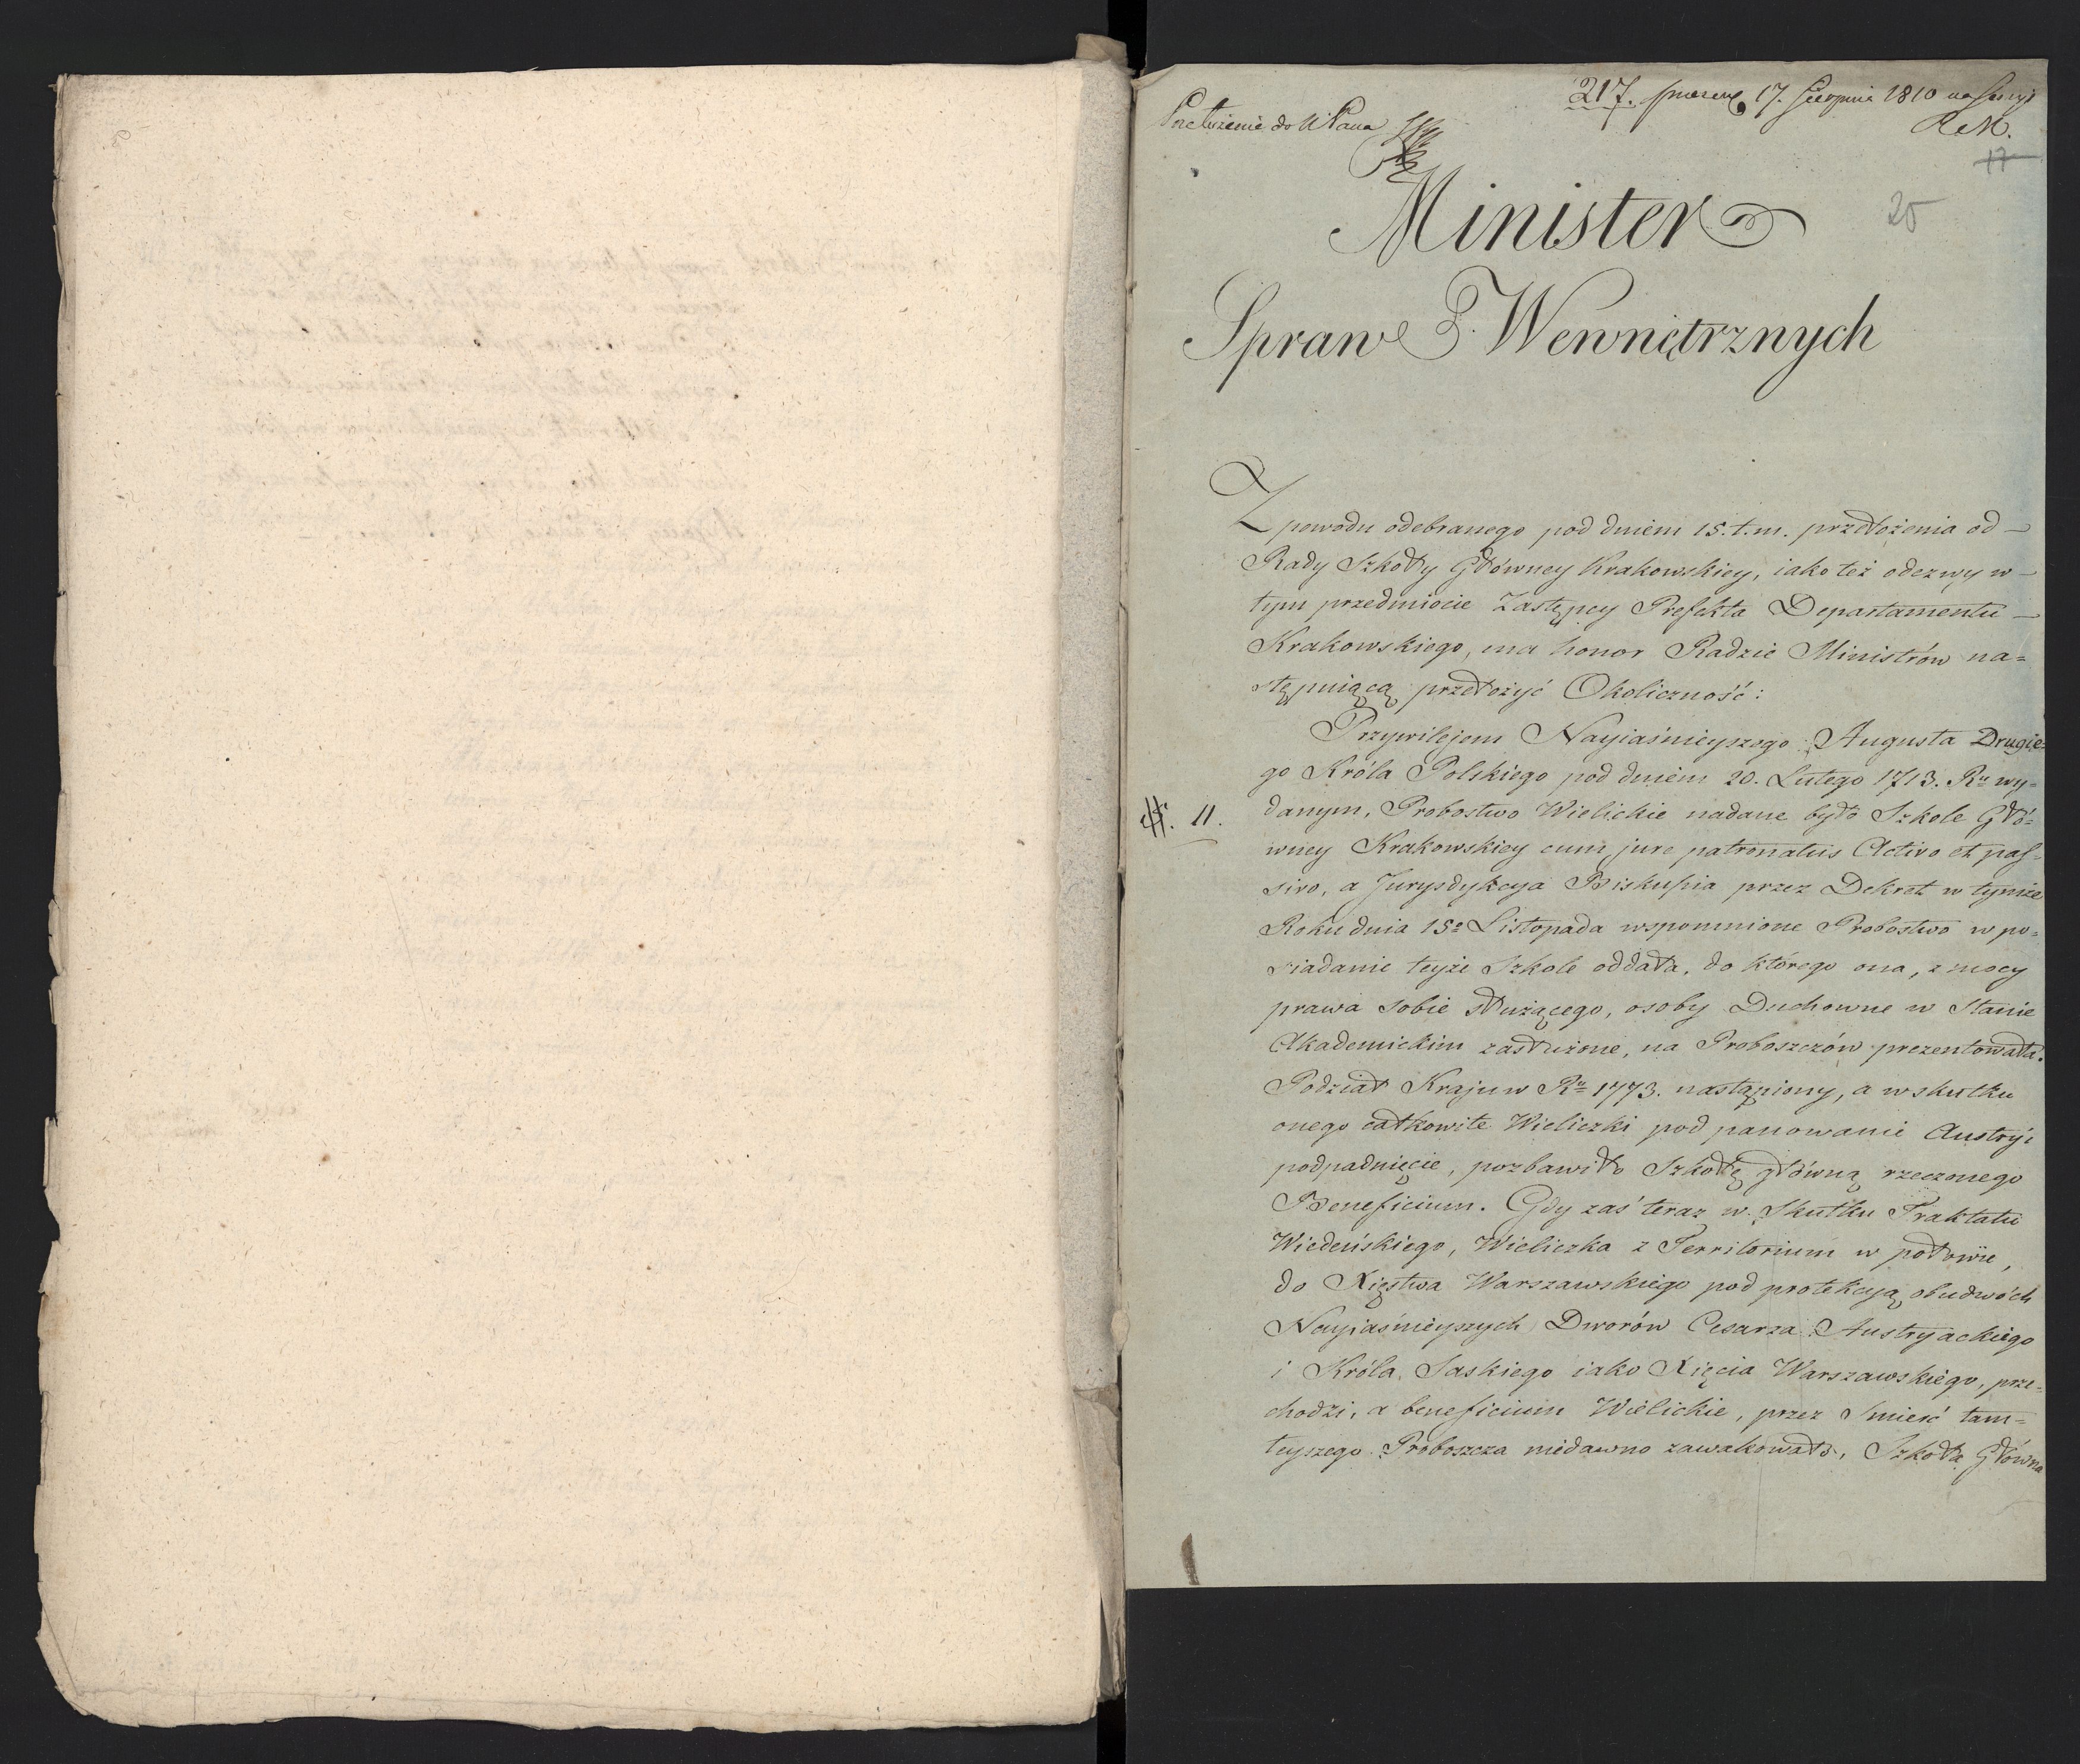 217. 17. Sierpnia 1810 na Sessyi
R. M.
Przełożenie do N Pana
17
20
Minister
Spraw Wewnętrznych
Z powodu odebranego pod dniem 15. t. m. przełożenia od
Rady Szkoły Główney Krakowskiey, iako też odezwy w
tym przedmiocie Zastępcy Prefekta Departamentu
Krakowskiego, ma honor Radzie Ministrów na=
stępuiącą przełożyć Okoliczność:
Przywilejem Nayiaśnieyszego Augusta Drugie=
go Króla Polskiego pod dniem 20. Lutego 1713. Ru wy=
danym, Probostwo Wielickie nadane było Szkole Głó=
#. 11.
wney Krakowskiey cum jure patronatus Activo et pas=
sivo, a Jurysdykcya Biskupia przez Dekret w tymże
Roku dnia 15o Listopada wspomnione Probostwo w po=
siadanie teyże Szkole oddała, do którego ona, z mocy
prawa sobie służącego, osoby Duchowne w Stanie
Akademickim zasłużone, na Proboszczów prezentowała.
Podział Kraju w Ru 1773. nastąpiony, a w skutku
onego całkowite Wieliczki pod panowanie Austryi
podpadnięcie, pozbawiło Szkołę główną rzeczonego
Beneficium. Gdy zaś teraz w Skutku Traktatu
Wiedeńskiego, Wieliczka z Territorium w połowie,
do Xięstwa Warszawskiego pod protekcyą obudwóch
Nayiaśnieyszych Dworów Cesarza Austryackiego
i Króla Saskiego iako Xięcia Warszawskiego, prze=
chodzi, a beneficium Wielickie, przez Smierć tam=
teyszego Proboszcza niedawno zawakowało, Szkoła Główna